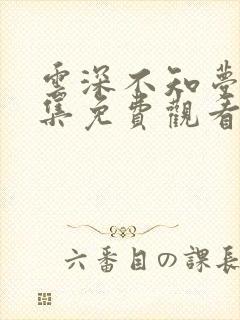 雲深不知夢
集免費觀看
六番目の課長